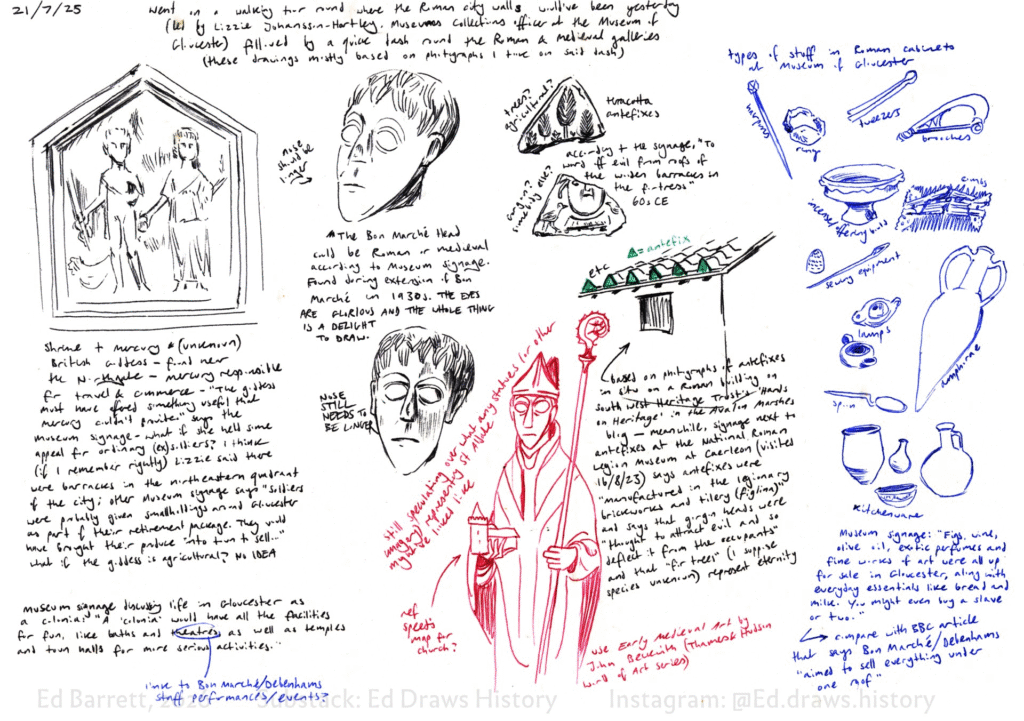 21/7/25
Went on a walking tour round where the Roman city walls would've been yesterday
(led by Lizzie Johansson-Hartley, Museums Collections officer at the Museum of
Gloucester) followed by a quick dash round the Roman & medieval galleries
(these drawings mostly based on photographs I took on said dash)
nose
should be
longer
trees?
agricultural?
terracotta
antefixes
according to the signage, "To
ward off evil from roofs of
the wooden barracks in
the fortress"
60s CE
types of stuff in Roman cabinets
at Museum of Gloucester
hairpins
ring
tweezers
brooches
incense
offering bowl
combs
sewing equipment
lamps
amphorae
spoon
Kitchenware
The Bon Marché Head
could be Roman or medieval
according to Museum signage.
Found during extension of Bon
Marché in 1930s. THE EYES
ARE GLORIOUS AND THE WHOLE THING
IS A DELIGHT
TO DRAW.
= antefix
etc
Shrine to mercury & (unknown)
British goddess – found near
the Northgate – mercury responsible
for travel & commerce – "The goddess
must have offered something useful that
mercury couldn't provide" says the
museum signage – what if she held some
appeal for ordinary (ex)soldiers? I think
(if I remember rightly) Lizzie said there
were barracks in the northeastern quadrant
of the city; other Museum signage says "Soldiers
were probably given smallholdings around Gloucester
as part of their retirement package. They would
have brought their produce into town to sell..."
what if the goddess is agricultural? NO IDEA
NOSE
STILL
NEEDS TO
BE LONGER
still speculating over what any statues (or other
imagery) representing St Aldate
might've looked like
based on photographs of antefixes
in situ on a Roman building on
South West Heritage Trust's 'Hands
on Heritage' in the Avalon Marshes
blog – meanwhile, signage next to
antefixes at the National Roman
Legion Museum at Caerleon (visited
16/8/23) says antefixes were
"manufactured in the legionary
brickworks and tilery (figlina)"
and says that gorgon heads were
"thought to attract evil and so
deflect it from the occupants"
and that "fir trees" (I suppose
species unknown) represent eternity
museum signage discussing life in Gloucester as
a colonia: "A 'colonia' would have all the facilities
for fun, like baths and theatres as well as temples
and town halls for more serious activities."
link to Bon Marché/Debenhams
staff performances/events?
ref
speeds
map for
church?
use Early Medieval Art by
John Beckwith (Thames & Hudson
World of Art series)
Museum signage: "Figs, wine,
olive oil, exotic perfumes and
fine works of art were all up
for sale in Gloucester, along with
everyday essentials like bread and
milk. You might even buy a slave
or two.
compare with BBC article
that says Bon Marché/Debenhams
"aimed to sell everything under
one roof"
Ed Barrett, 2026 Substack: Ed Draws History Instagram: @Ed.draws.history